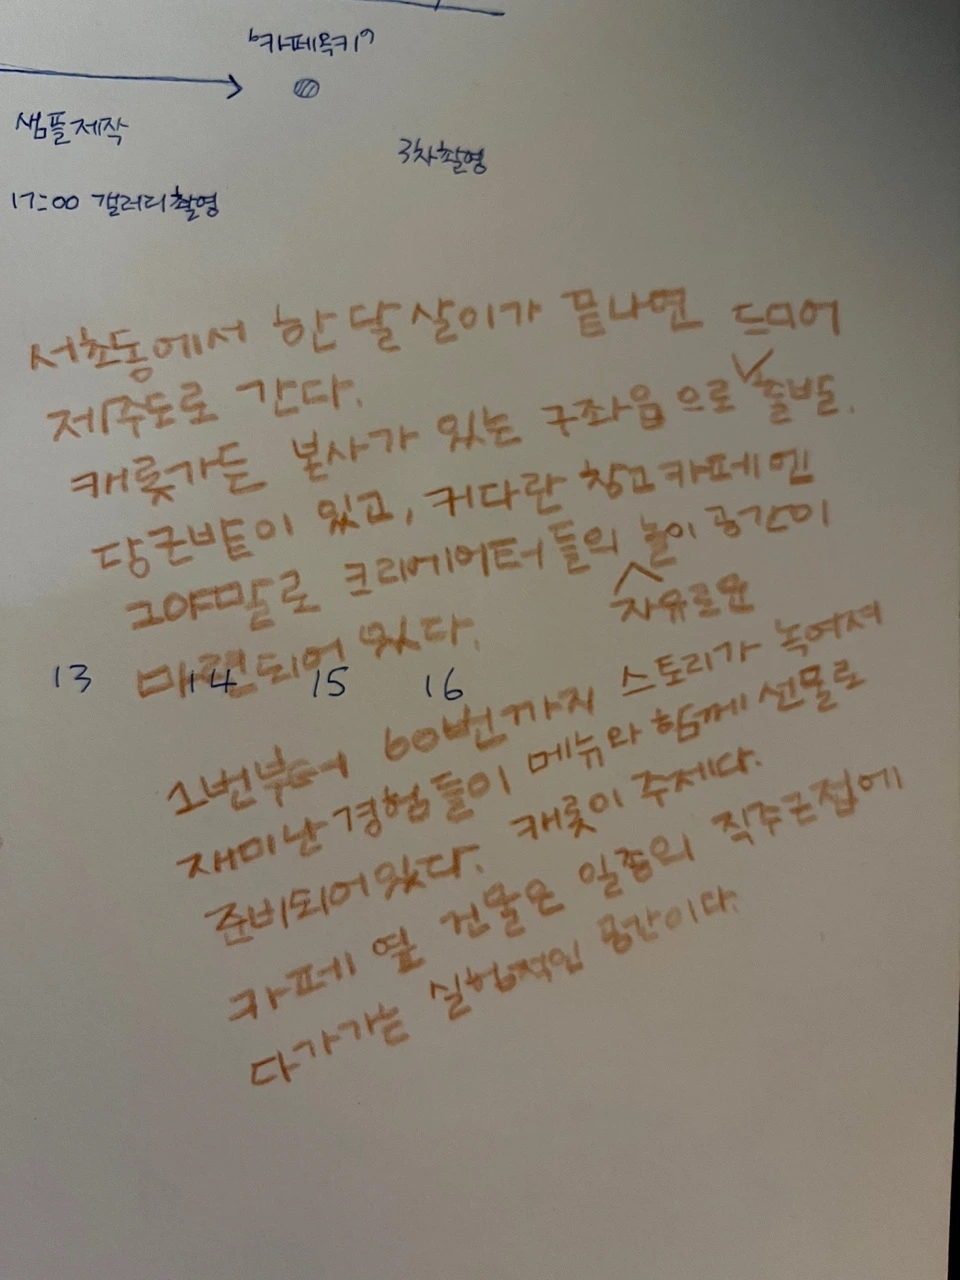 "카페옥키"
샘플제작
3차촬영
17:00 갤러리촬영
서초동에서 한달살이가 끝나면 드디어
제주도로 간다.
캐롯가든 본사가 있는 구좌읍으로 출발.
당근밭이 있고, 커다란 창고카페엔
그야말로 크리에이터들의 놀이 공간이
자유로운
마련되어 있다.
13 14 15 16
1번부터 60번까지 스토리가 녹여져
재미난 경험들이 메뉴와 함께 선물로
준비되어있다. 캐롯이 주제다.
카페 옆 건물은 일종의 직주근접에
다가가는 실험적인 공간이다.